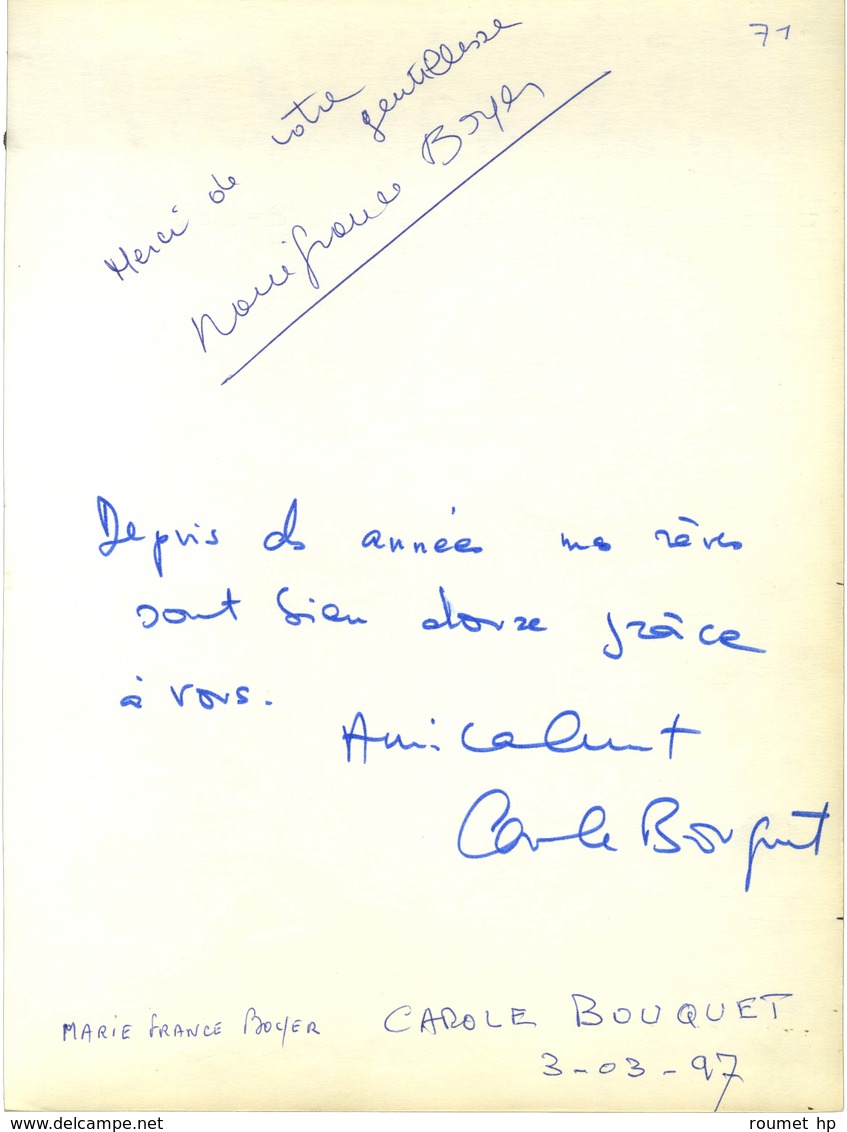 71
Merci de votre gentillesse
Marie france Boyer
Depuis des années mes rêves
sont bien doux grâce
à vous.
Amicalement
Carole Bouquet
MARIE FRANCE BOYER
CAROLE BOUQUET
3-03-97
www.delcampe.net
roumet hp